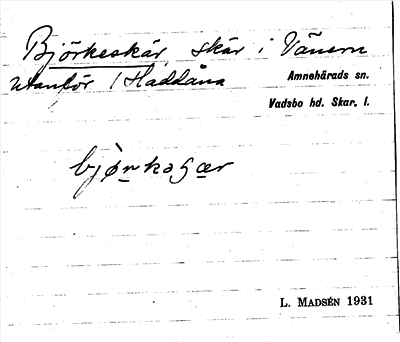 Björkeskär, skär i Vänern
utanför 1 Haddåna
Amnehärads sn.
Vadsbo hd. Skar. l.
L. MADSÉN 1931